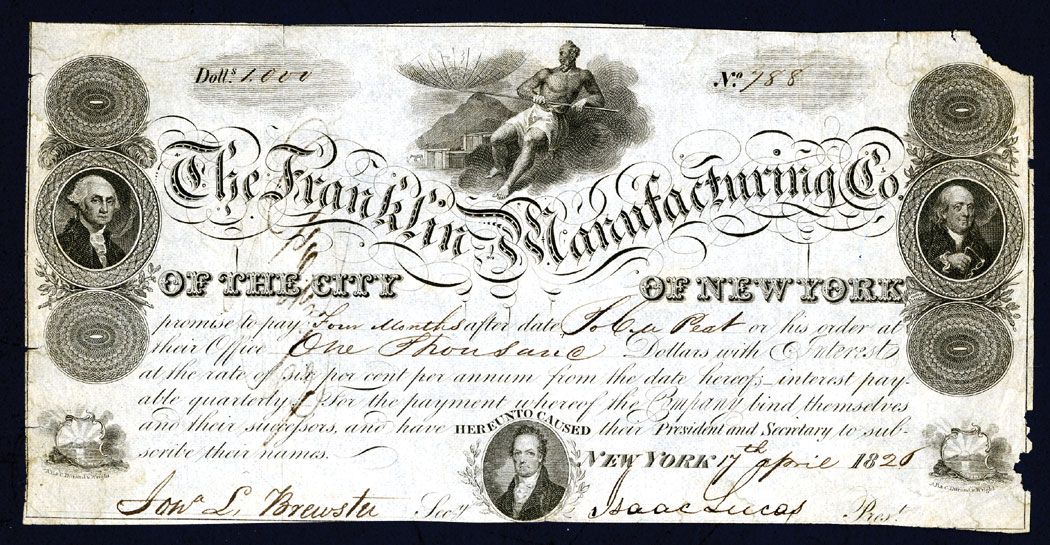 Doll.ˢ 1.000
Nº 788
The Franklin Manufacturing Co.
OF THE CITY OF NEW YORK
promise to pay Four Months after date To C M Peat or his order at
their Office One Thousand Dollars with Interest
at the rate of six per cent per annum from the date hereof interest pay-
able quarterly. For the payment whereof the Company bind themselves
and their successors, and have HEREUNTO CAUSED their President and Secretary to sub-
scribe their names.
NEW YORK 17th april 1826
A.B. & C. Durand & Wright
A.B. & C. Durand & Wright
Jonᵃ L. Brewster Secʸ
Isaac Lucas Presᵗ